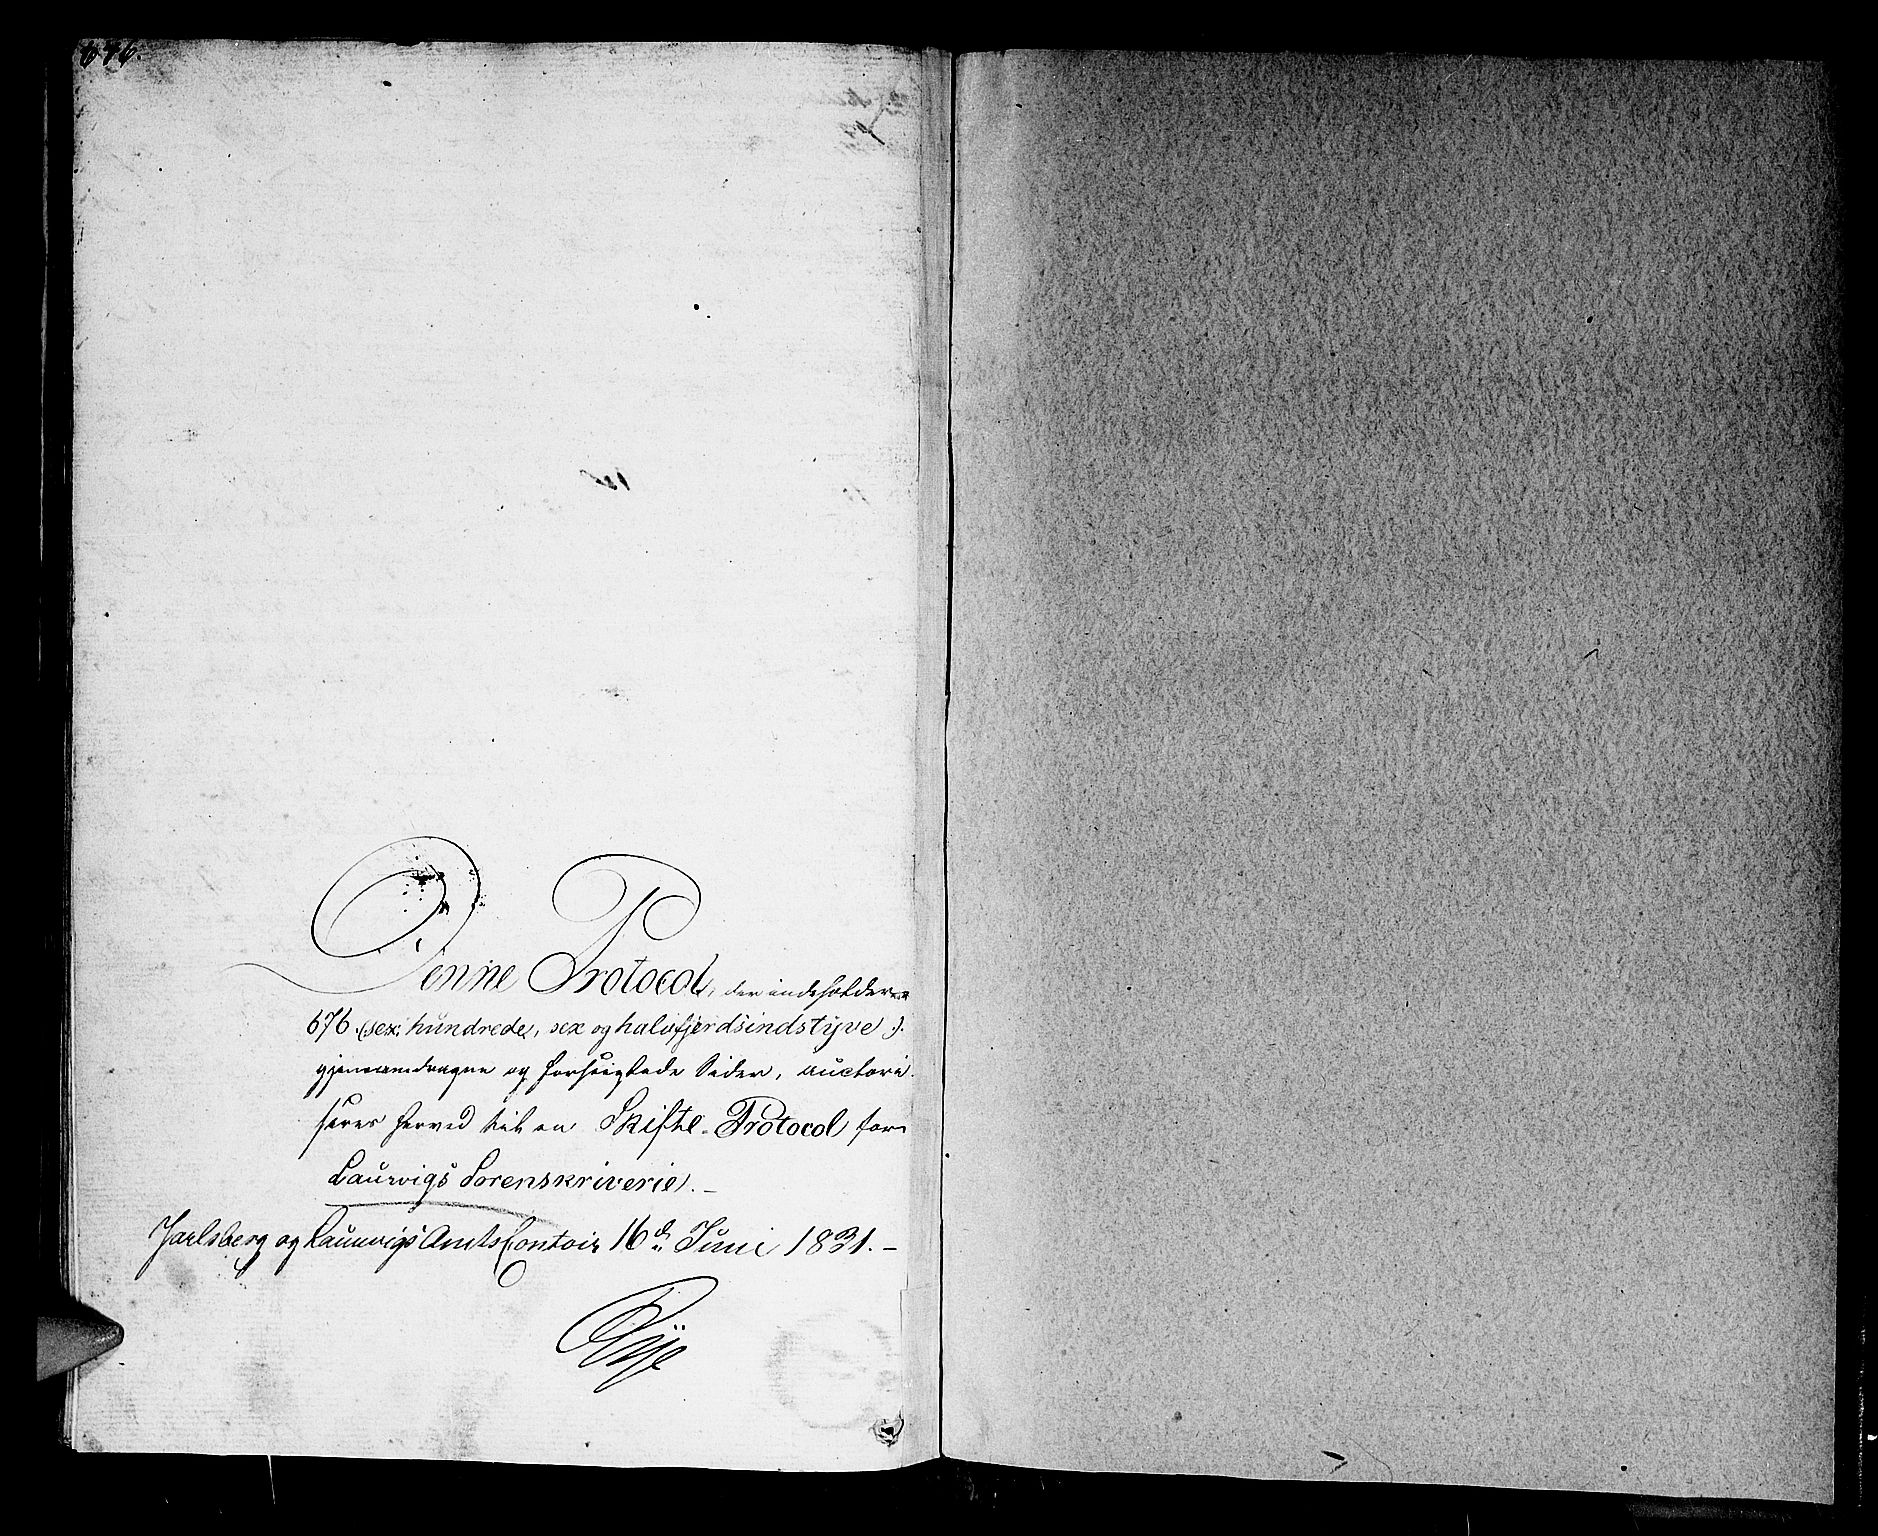 676.
Denne Protocol, der indeholder
676 (sex hundrede, sex og halvfjerdsindstyve)
gjennemdragne og forseiglede Sider, auctori-
seres herved til en Skifte-Protocol for
Laurvigs Sorenskriverie. –
Jarlsberg og Laurvigs Amts Contoir 16d Juni 1831. –